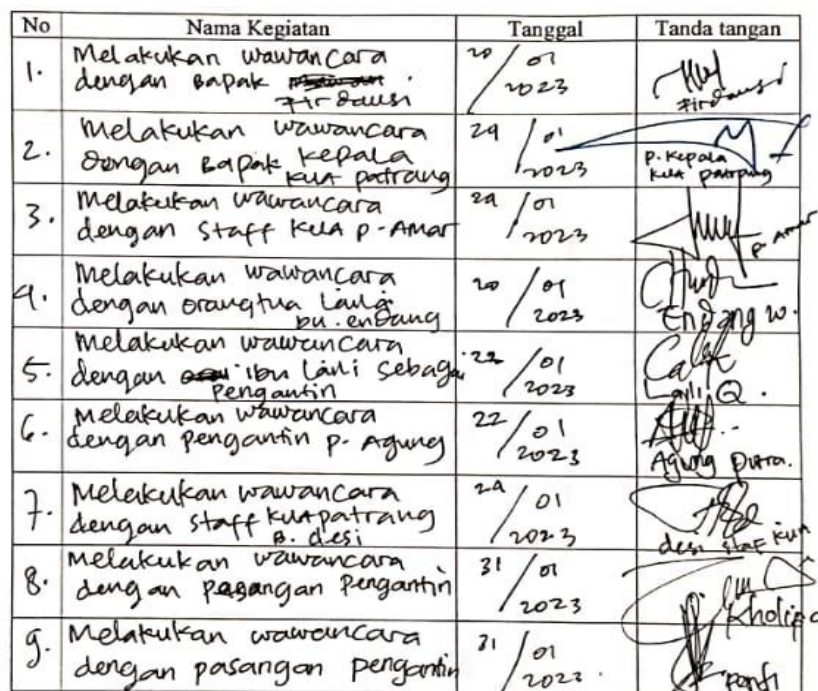 No Nama Kegiatan Tanggal Tanda tangan
1. Melakukan wawancara
dengan Bapak
Firdausi
20/01
2023
Firdausi
2. Melakukan wawancara
dengan Bapak Kepala
KUA patrang
24/01
2023
P. Kepala
KUA patrang
3. Melakukan wawancara
dengan Staff KUA p. Amar
24/01
2023
p. Amar
4. Melakukan wawancara
dengan orangtua Laili
bu. endang
20/01
2023
Endang W.
5. Melakukan wawancara
dengan ibu Laili sebagai
Pengantin
22/01
2023
Laili Q.
6. Melakukan wawancara
dengan pengantin p. Agung
22/01
2023
Agung Putra.
7. Melakukan wawancara
dengan Staff KUA patrang
B. desi
24/01
2023
desi staf KUA
8. Melakukan wawancara
dengan Pasangan Pengantin
31/01
2023
9. Melakukan wawancara
dengan pasangan pengantin
31/01
2023